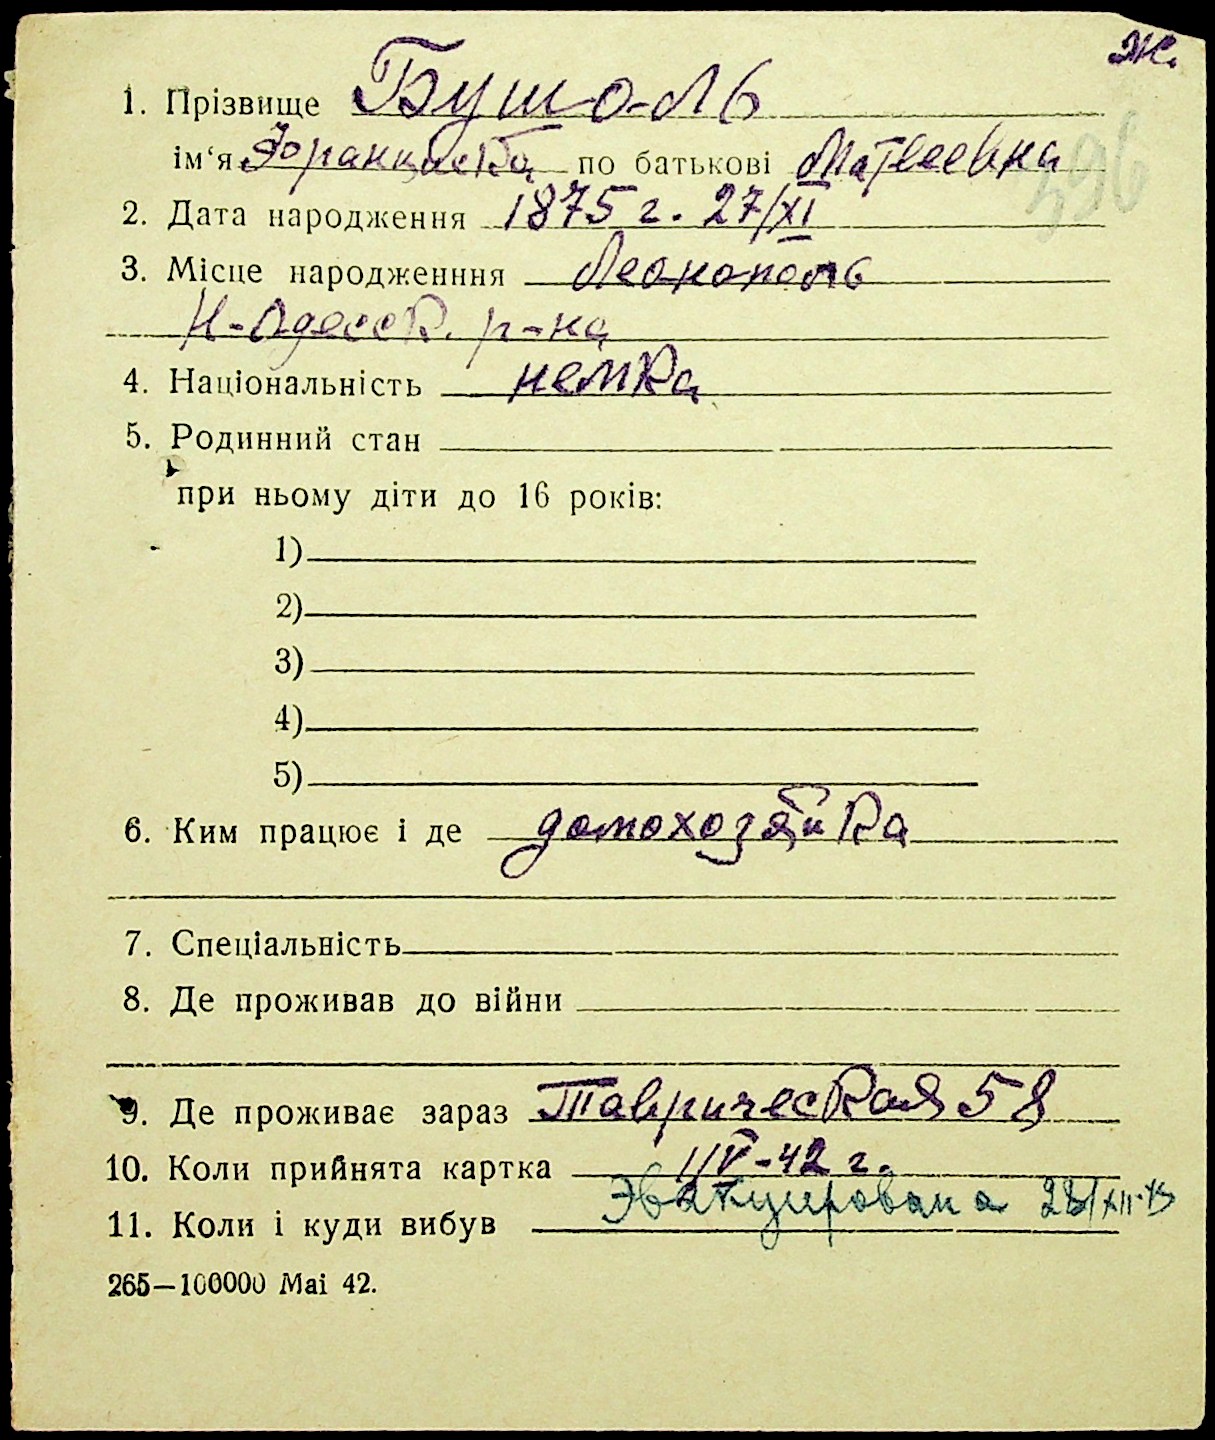 Ж.
1. Прізвище Бушоль
ім‘я Франциска по батькові Матвеевна
396
2. Дата народження 1875 г. 27/XI
3. Місце народженння Леонополь
Н-Одесск. р-на
4. Національність немка
5. Родинний стан
при ньому діти до 16 років:
1)
2)
3)
4)
5)
6. Ким працює і де домохозяйка
7. Спеціальність
8. Де проживав до війни
9. Де проживає зараз Таврическая 58
10. Коли прийнята картка 1/V-42 г.
11. Коли і куди вибув Эвакуирована 28/XII-43
265—100000 Маі 42.